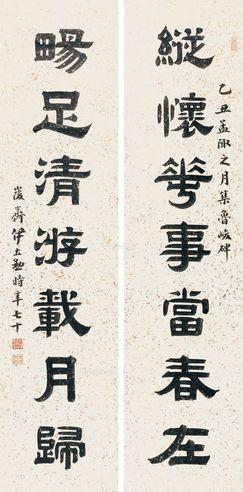 縱懷花事當春在
乙丑孟陬之月集魯峻碑
暢足清游載月歸
峻齋伊立勳時年七十